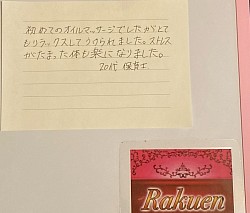 初めてのオイルマッサージでしたが、とて
もリラックスしてうけられました。ストレス
がたまった体も楽になりました。
20代 保育士
Rakuen